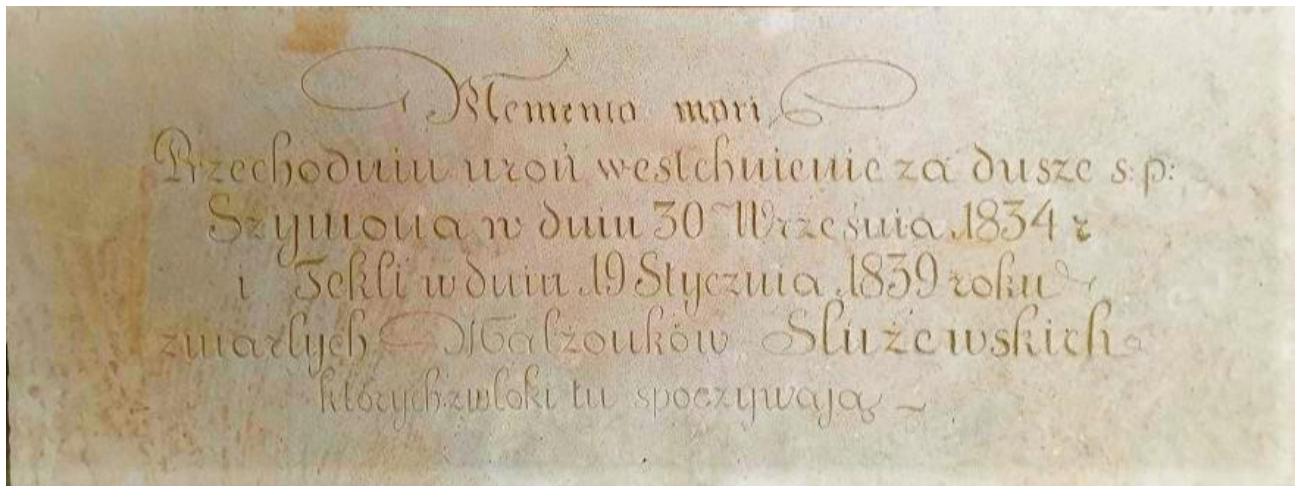 Memento mori
Przechodniu uroń westchnienie za dusze s:p:
Szymona w dniu 30 Września 1834 r
i Tekli w dniu 19 Stycznia 1839 roku
zmarłych Małżonków Służewskich
których zwłoki tu spoczywają